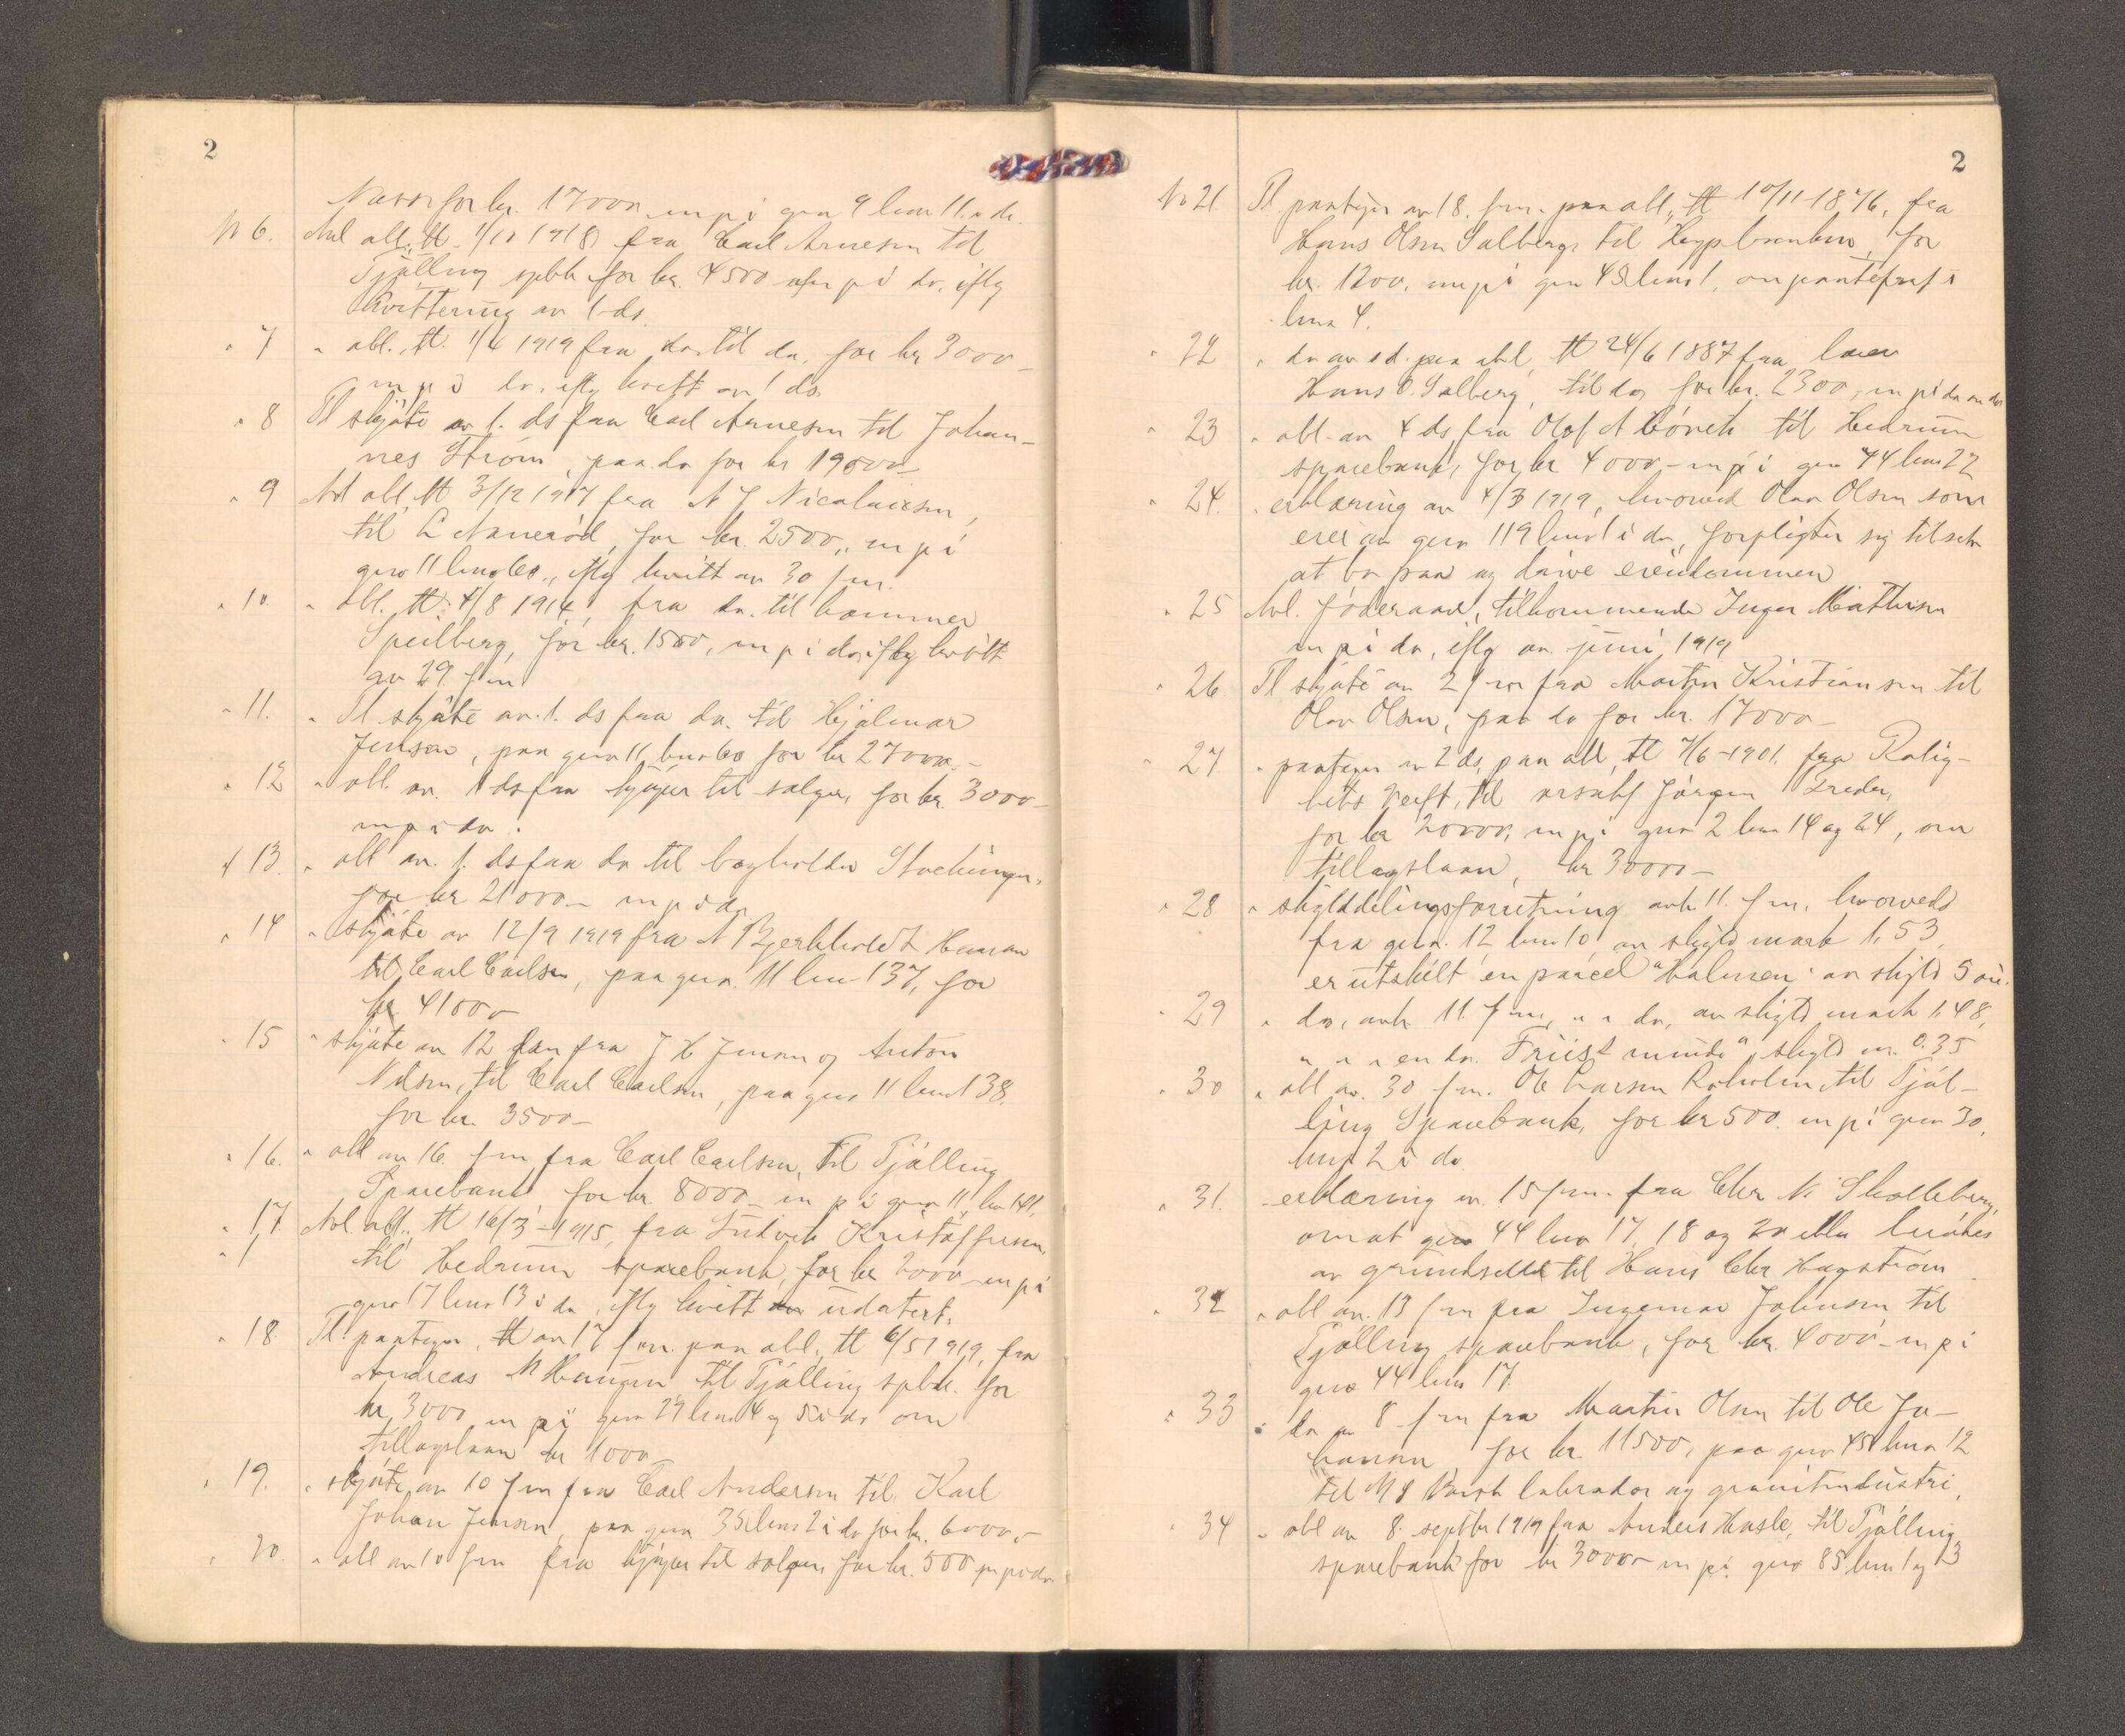 2
for kr. 17000 m p i gno 9 bno 11. i do.
No 6. Avl obl. tl. 1/10 1918 fra Carl Arnesen til
Tjølling spbk for kr. 4500 m p i do. iflg
kvittering av 1. ds.
" 7 " obl. tl. 1/4 1919 fra do til do. for kr 3000 –
m p i do. iflg kvitt av 1 ds.
" 8 Tl skjøte av 1. ds fra Carl Arnesen til Johan–
nes Strøm, paa do for kr 19000 –
" 9 Avl obl. tl 3/12 1917 fra N J Nicolaisen,
til L Nanerød, for kr. 2500,. m p i
gno 11 bno 60., iflg kvitt av 30 f m.
" 10. " obl. tl. 4/8 1914, fra do. til
Speilberg, for kr. 1500, m p i do, iflg kvitt
av 29. f m.
" 11. " Tl skjøte av. 1. ds fra do. til Hjalmar
Jensen, paa gno 11 bno 60 for kr 27000. –
" 12 " obl. av. 1 ds fra kjøper til sælger, for kr. 3000 –
m p i do.
" 13. " obl av. 1. ds fra do til bogholder
for kr 21000 – m p i do.
" 14 " skjøte av 12/9 1919 fra A Bjerkholdt Hansen
til Carl Carlsen, paa gno. 11 bno 137, for
kr. 4100 –
" 15 " skjøte av 12 f m fra J H Jensen og Anton
Nilsen, til Carl Carlsen, paa gno 11 bno 138.
for kr. 3500 –
" 16. " obl av 16. f m fra Carl Carlsen, til Tjølling
Sparebank for kr. 8000 – m p i gno 11, bno 141.
" 17 Avl. obl., tl 16/3 – 1915, fra Ludvik Kristoffersen,
til Hedrum sparebank, for kr 2000 – m p i
gno 17 bno 13 i do, iflg kvitt udatert.
" 18 Tl. panteyn. av 17 f m. paa obl., tl 6/5 1919, fra
Andreas M Haugen til Tjølling spbk. for
kr. 3000 m p i gno 27 bno 4 og 5 i do om
tillægslaan kr 1000 –
" 19. " skjøte, av 10 f m fra Carl Andersen til Karl
Johan Jensen, paa gno 35 bno 2 i do for kr. 6000, –
" 20. " obl av 10 f m fra kjøper til sælger, for kr. 500 m p i do
2
No 21. Tl panteyn av 18. f m. paa obl., tl 10/11 1876, fra
Hans Olsen Salberg til Hypbanken, for
kr. 1200, m p i gno 48 bno 1, om pantefraf i
bno 4.
" 22 " do av s d. paa obl, tl 24/6 1887 fra
Hans O. Salberg, til do, for kr. 2300, m p i do om do
" 23 " obl. av 4 ds, fra Olaf A til Hedrum
sparebank, for kr 4000 – m p i gno 44 bno 22
" 24. " erklæring av 4/3 1919, hvorved Olav Olsen som
eier av gno 119 bno 1 i do, forpligter sig til selv
at bo paa og drive eiendommen
" 25 Avl. føderaad, tilkommende Inger Mathisen
m p i do, iflg av juni 1919
" 26 Tl skjøte av 2 f m fra Martin Kristiansen til
Olav Olsen, paa do for kr. 17000 –
" 27. " panteyn av 2 ds, paa obl, tl 7/6 – 1901, fra Rolig–
hets verft, til Jørgen Treder,
for kr 20000, m p i gno 2 bno 14 og 24, om
tillægslaan, kr 30000 –
" 28 " skylddelingsforretning avh 11. f m. hvorved
fra gno. 12 bno 10 av skyld mark 1.53
er utskilt en parcel "Kalmoen" av skyld 5 øre.
" 29 " do, avh 11. f m, " " do, av skyld mark 1.48,
" " " en do. "Friis minde", skyld m. 0.35
" 30 " obl av. 30 f m. Ole Larsen Roholm til Tjøl–
ling Sparebank, for kr 500. m p i gno 30,
bno 2 i do
" 31. " erklæring av. 15 f m. fra Chr N. Skalleberg,
om at gno 44 bno 17, 18 og 20 ikke
av til Hans Chr Hagstrøm
" 32 " obl av. 13 f m fra Ingemar Johnsen til
Tjølling sparebank, for kr. 4000 – m p i
gno 44 bno 17.
" 33 " do av 8 f m fra Martin Olsen til Ole Jo–
hansen, for kr 11500, paa gno 45 bno 12
til labrador og granitindustri,
" 34 " obl av 8. septbr 1919 fra Anders Hasle, til Tjølling
sparebank for kr 3000 – m p i gno 85 bno 1 og 13